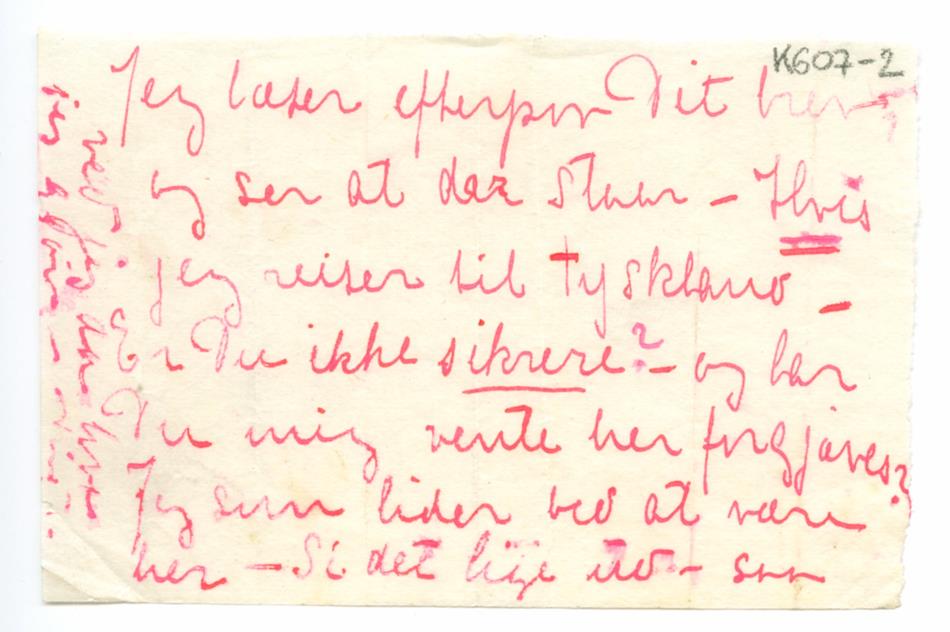 K607-2
Jeg læser efterpaa Dit brev
og ser at der staar – Hvis
jeg reiser til tyskland –
Er Du ikke sikrere? – og lar
Du mig vente her forgjæves?
Jeg som lider ved at være
her – Si det lige ud – saa
ved jeg da hva
jeg